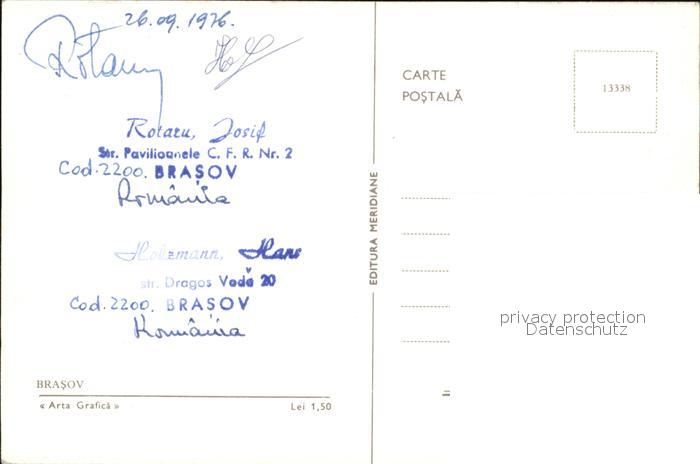 26.09.1976.
Rotaru
Rotaru, Josif
Str. Pavilioanele C. F. R. Nr. 2
Cod. 2200. BRAȘOV
România
Holzmann, Hans
str. Dragos Vodă 20
Cod. 2200. BRASOV
România
BRAȘOV
« Arta Grafică »
Lei 1,50
EDITURA MERIDIANE
CARTE
POȘTALĂ
13338
privacy protection
Datenschutz